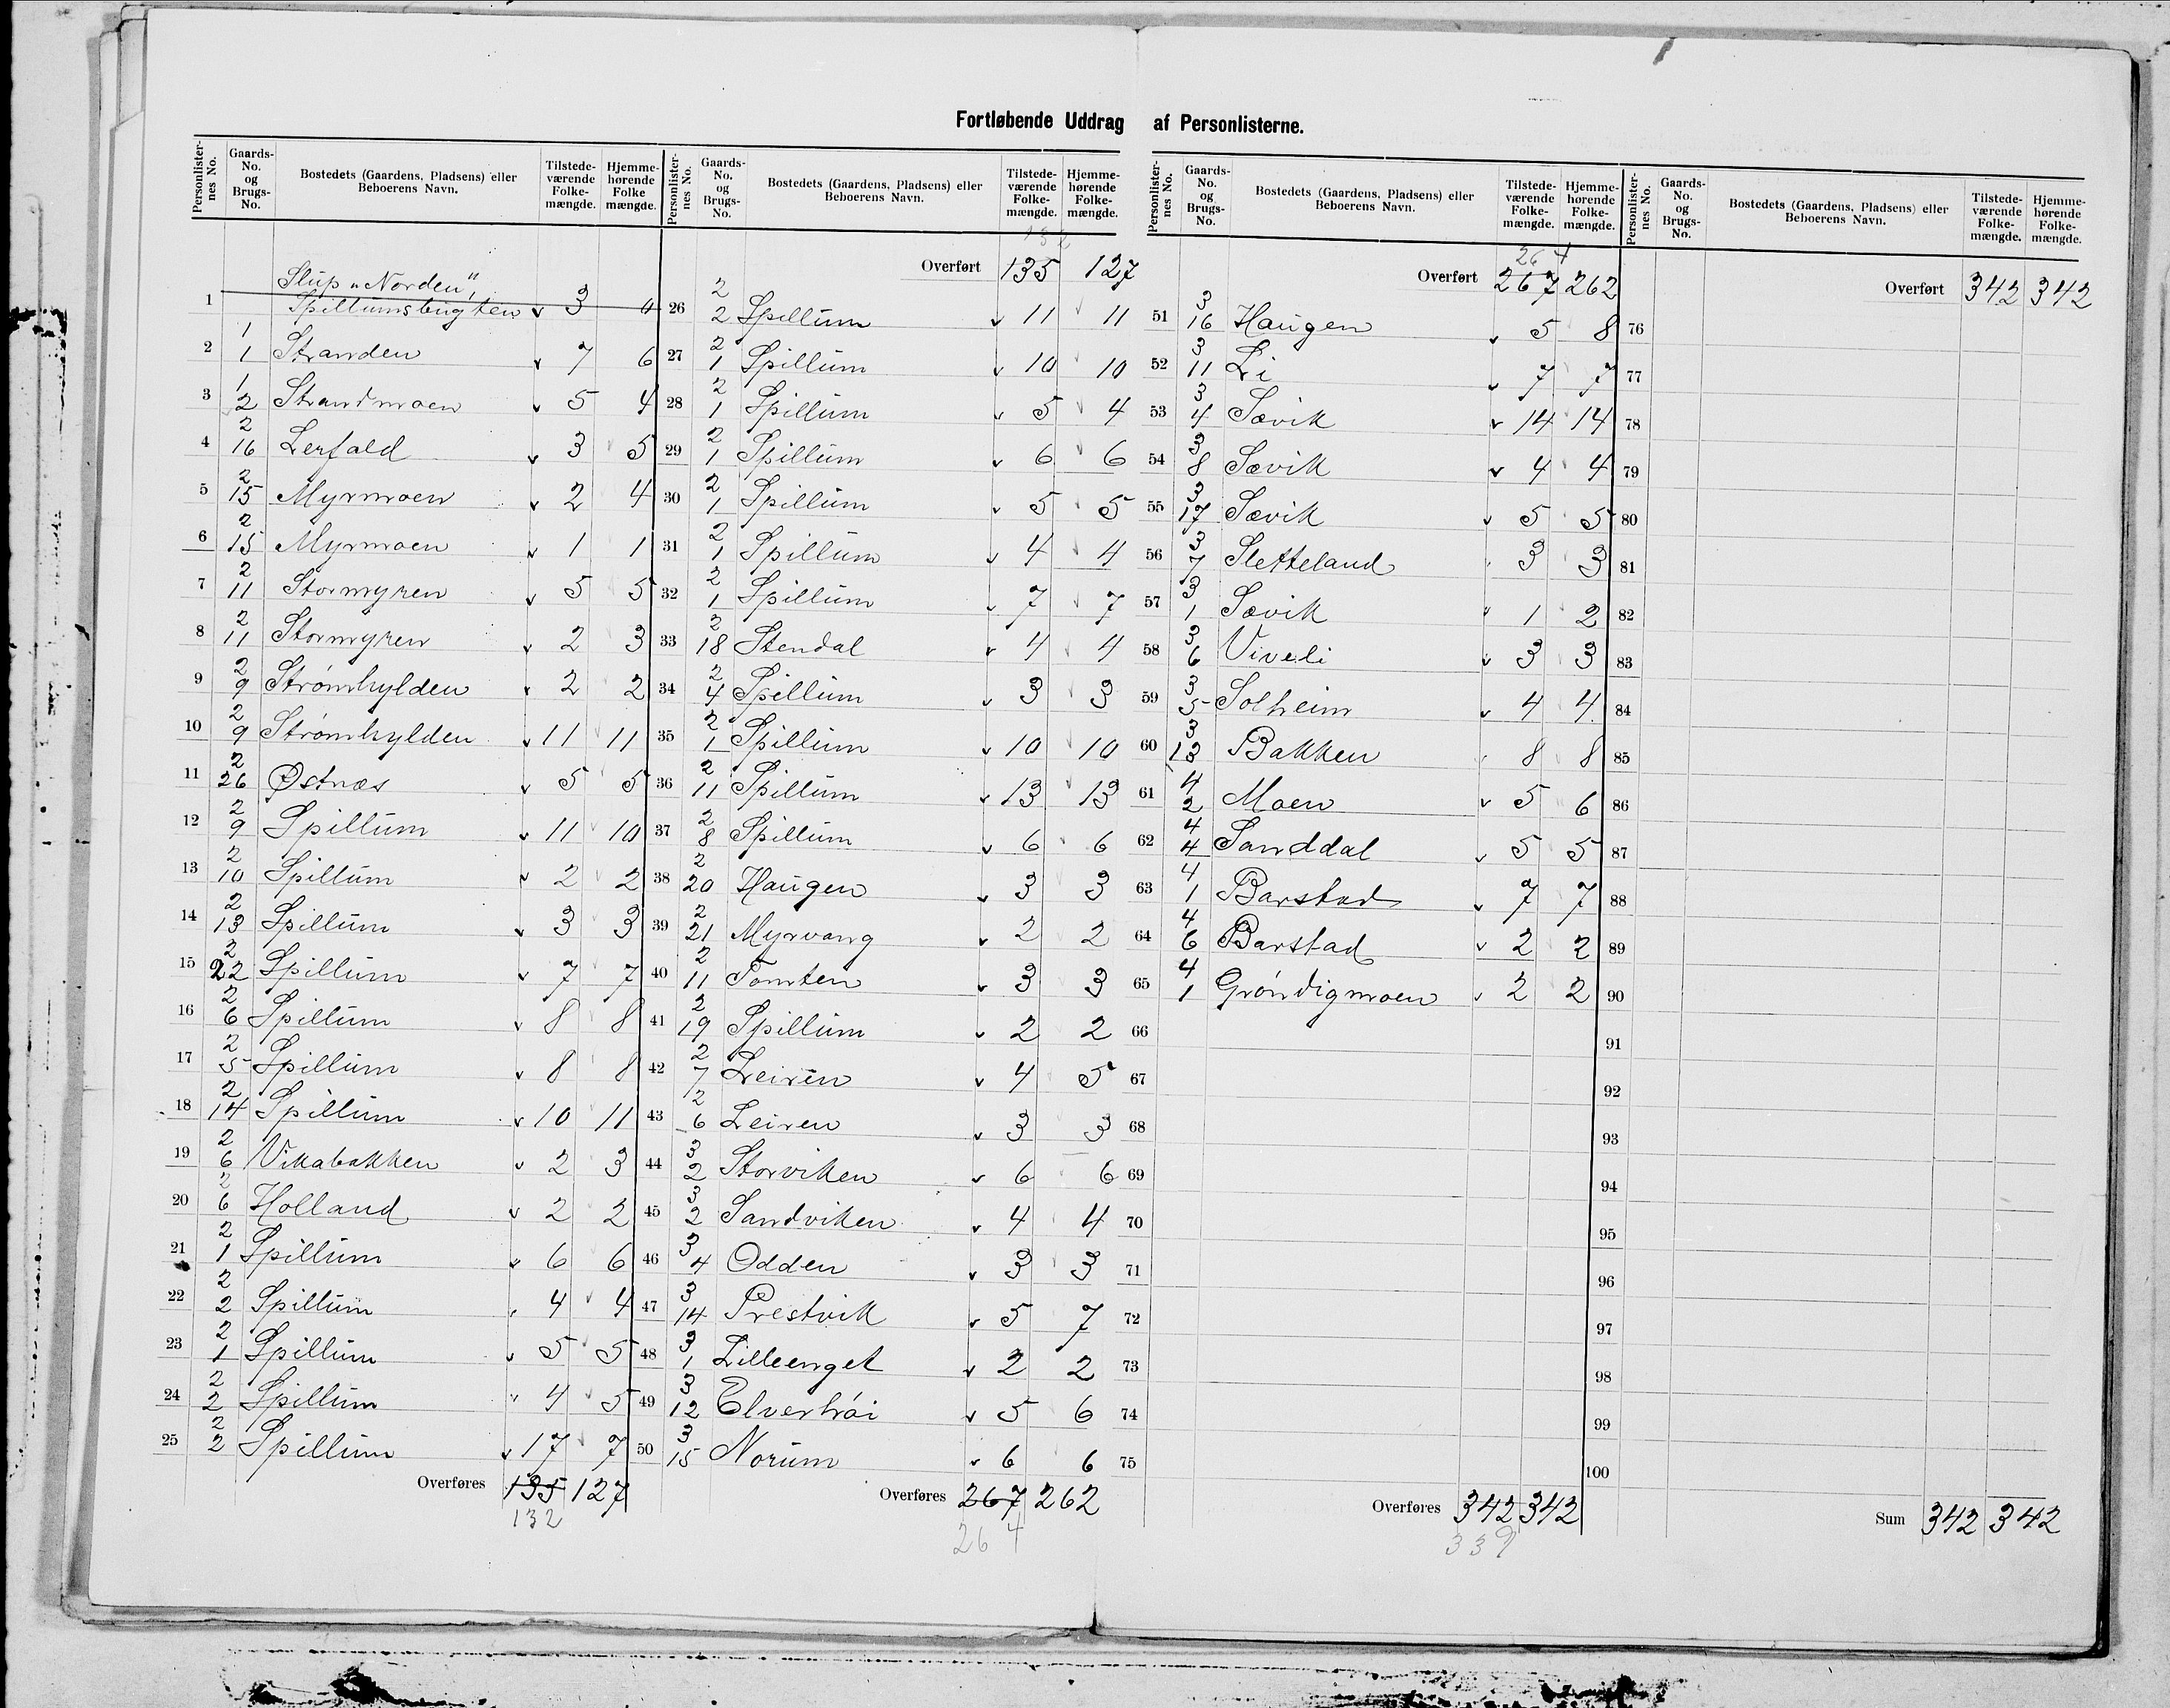 Fortløbende Uddrag af Personlisterne.
Personlister-nes No. | Gaards-No. og Brugs-No. | Bostedets (Gaardens, Pladsens) eller Beboerens Navn. | Tilstede-værende Folke-mængde. | Hjemme-hørende Folke mængde.
Slup "Norden",
1 Spillumsbugten v 3 4
2 1/1 Stranden v 7 6
3 1/2 Strandmoen v 5 4
4 2/16 Lerfald v 3 5
5 2/15 Myrmoen v 2 4
6 2/15 Myrmoen v 1 1
7 2/11 Stormyren v 5 5
8 2/11 Stormyren v 2 3
9 2/9 Strømhylden v 2 2
10 2/9 Strømhylden v 11 11
11 2/26 Østnæs v 5 5
12 2/9 Spillum v 11 10
13 2/10 Spillum v 2 2
14 2/13 Spillum v 3 3
15 2/22 Spillum v 7 7
16 2/6 Spillum v 8 8
17 2/5 Spillum v 8 8
18 2/14 Spillum v 10 11
19 2/6 Vikabakken v 2 3
20 2/6 Holland v 2 2
21 2/1 Spillum v 6 6
22 2/2 Spillum v 4 4
23 2/1 Spillum v 5 5
24 2/2 Spillum v 4 5
25 2/2 Spillum v 17 7
Overføres 135 127
132
Personlister-nes No. | Gaards-No. og Brugs-No. | Bostedets (Gaardens, Pladsens) eller Beboerens Navn. | Tilstede-værende Folke-mængde. | Hjemme-hørende Folke-mængde.
132
Overført 135 127
26 2/2 Spillum v 11 11
27 2/1 Spillum v 10 10
28 2/1 Spillum v 5 4
29 2/1 Spillum v 6 6
30 2/1 Spillum v 5 5
31 2/1 Spillum v 4 4
32 2/1 Spillum v 7 7
33 2/18 Stendal v 4 4
34 2/4 Spillum v 3 3
35 2/1 Spillum v 10 10
36 2/11 Spillum v 13 13
37 2/8 Spillum v 6 6
38 2/20 Haugen v 3 3
39 2/21 Myrvang v 2 2
40 2/11 Tomten v 3 3
41 2/19 Spillum v 2 2
42 2/7 Leiren v 4 5
43 2/6 Leiren v 3 3
44 3/2 Storviken v 6 6
45 3/2 Sandviken v 4 4
46 3/4 Odden v 3 3
47 3/14 Prestvik v 5 7
48 3/1 Lilleenget v 2 2
49 3/12 Elverhói v 5 6
50 3/15 Norum v 6 6
Overføres 267 262
264
Personlister-nes No. | Gaards-No. og Brugs-No. | Bostedets (Gaardens, Pladsens) eller Beboerens Navn. | Tilstede-værende Folke-mængde. | Hjemme-hørende Folke-mængde.
264
Overført 267 262
51 3/16 Haugen v 5 8
52 3/11 Li v 7 7
53 3/4 Sævik v 14 14
54 3/8 Sævik v 4 4
55 3/17 Sævik v 5 5
56 3/7 Sletteland v 3 3
57 3/1 Sævik v 1 2
58 3/6 Viveli v 3 3
59 3/5 Solheim v 4 4
60 3/13 Bakken v 8 8
61 4/2 Moen v 5 6
62 4/4 Sanddal v 5 5
63 4/1 Barstad v 7 7
64 4/6 Barstad v 2 2
65 4/1 Gróndigmoen v 2 2
66
67
68
69
70
71
72
73
74
75
Overføres 342 342
339
Personlister-nes No. | Gaards-No. og Brugs-No. | Bostedets (Gaardens, Pladsens) eller Beboerens Navn. | Tilstede-værende Folke-mængde. | Hjemme-hørende Folke-mængde.
Overført 342 342
76
77
78
79
80
81
82
83
84
85
86
87
88
89
90
91
92
93
94
95
96
97
98
99
100
Sum 342 342